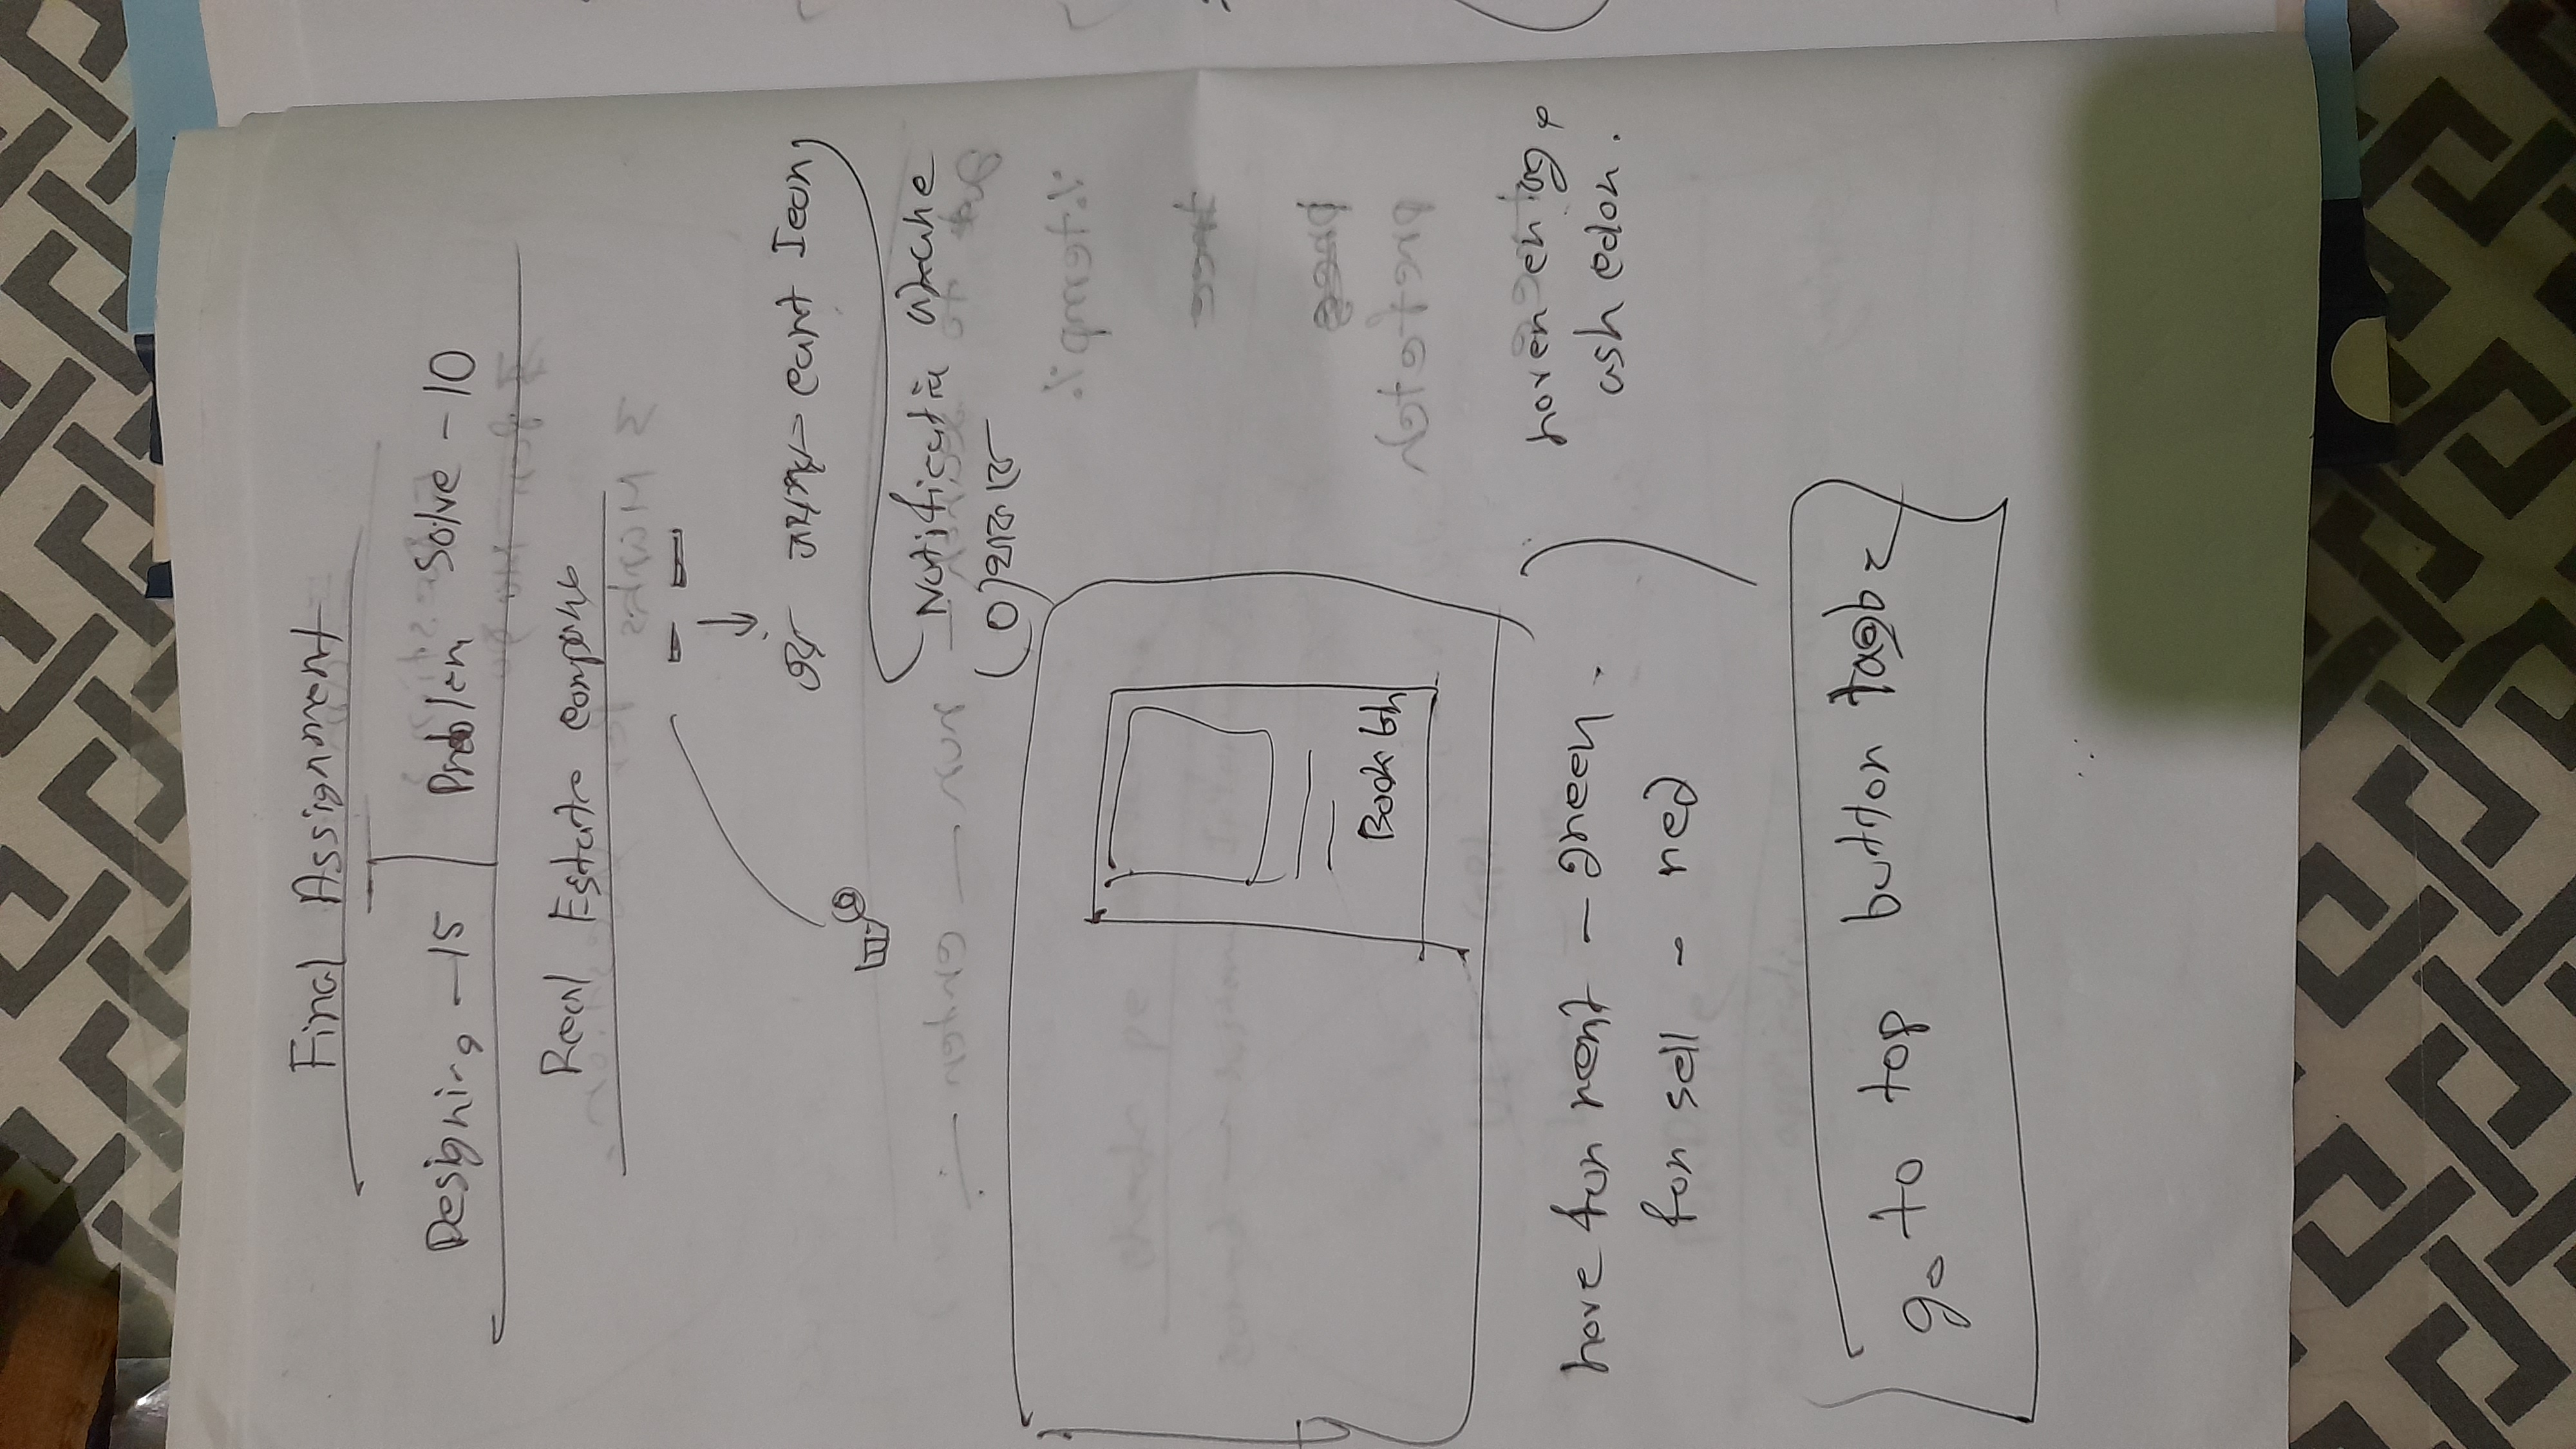 Final Assignment
Designing - 15 | Problem Solve - 10
Real Estate company
cart Icon
Notification
(0) থাকবে
Book btn
hove for rent - green.
for sell - red
hover er ag e
ash color.
go to top button lagbe